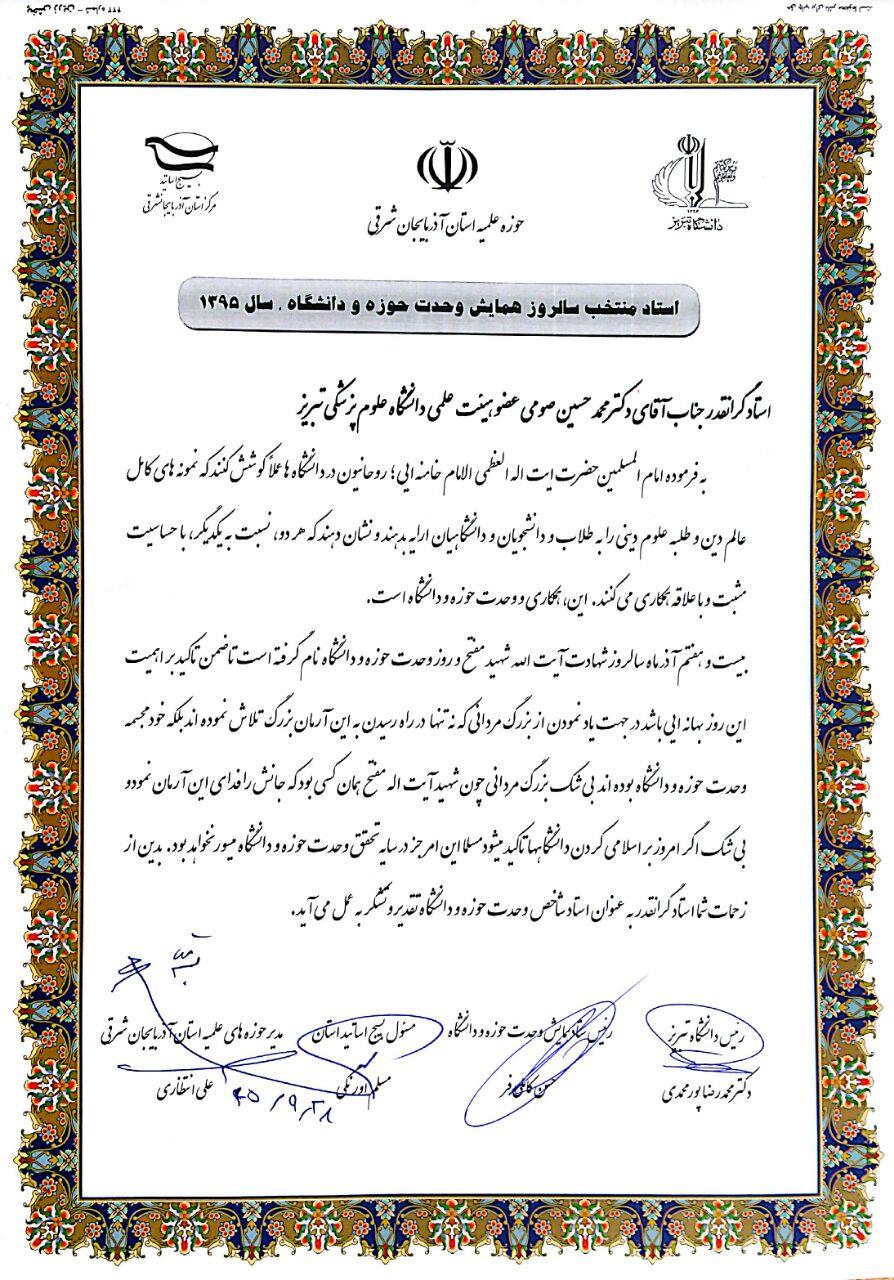 بسیج اساتید
مرکز استان آذربایجانشرقی
حوزه علمیه استان آذربایجان شرقی
۱۳۲۶
دانشگاه تبریز
استاد منتخب سالروز همایش وحدت حوزه و دانشگاه . سال ۱۳۹۵
استاد گرانقدر جناب آقای دکتر محمد حسین صومی عضو هیئت علمی دانشگاه علوم پزشکی تبریز
به فرموده امام المسلمین حضرت ایت اله العظمی الامام خامنه ایی؛ روحانیون در دانشگاه ها عملاً کوشش کنند که نمونه های کامل
عالم دین و طلبه علوم دینی را به طلاب و دانشجویان و دانشگاهیان ارایه بدهند و نشان دهند که هر دو، نسبت به یکدیگر، با حساسیت
مثبت و با علاقه همکاری می کنند. این، همکاری و وحدت حوزه و دانشگاه است.
بیست و هفتم آذر ماه سالروز شهادت آیت الله شهید مفتح و روز وحدت حوزه و دانشگاه نام گرفته است تا ضمن تاکید بر اهمیت
این روز بهانه ایی باشد در جهت یاد نمودن از بزرگ مردانی که نه تنها در راه رسیدن به این آرمان بزرگ تلاش نموده اند بلکه خود مجسمه
وحدت حوزه و دانشگاه بوده اند بی شک بزرگ مردانی چون شهید آیت اله مفتح همان کسی بود که جانش را فدای این آرمان نمود و
بی شک اگر امروز بر اسلامی کردن دانشگاهها تاکید میشود مسلما این امر جز در سایه تحقق وحدت حوزه و دانشگاه میسور نخواهد بود. بدین از
زحمات شما استاد گرانقدر به عنوان استاد شاخص وحدت حوزه و دانشگاه تقدیر و تشکر به عمل می آید.
رئیس دانشگاه تبریز
دکتر محمدرضا پورمحمدی
رئیس ستاد همایش وحدت حوزه و دانشگاه
مسئول بسیج اساتید استان
مدیر حوزه های علمیه استان آذربایجان شرقی
علی انتظاری
۹۵/۹/۲۸